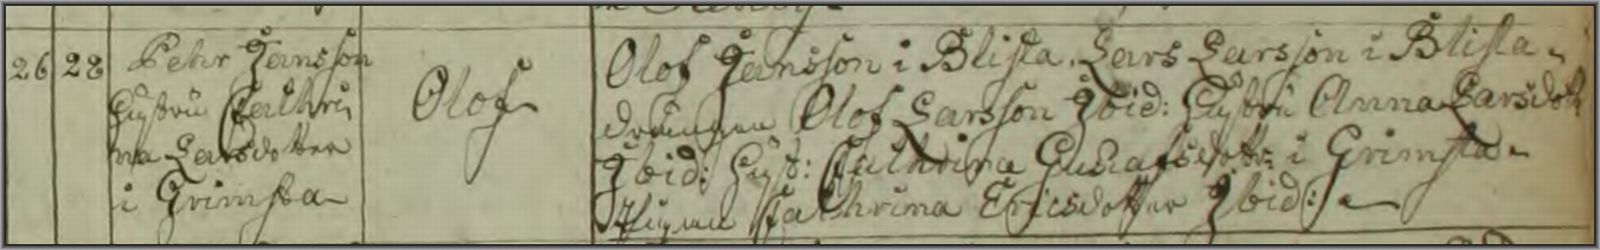 26 28 Pehr Jansson
hustru Cathri
na Larsdotter
i Grimsta
Olof
Olof Jansson i Blista. Lars Larsson i Blista
drängen Olof Larsson Ibid: hustru Anna Larsdott
Ibid: hust: Cathrina Gustafsdottr i Grimsta
Pigan Cathrina Ericsdotter Ibid: